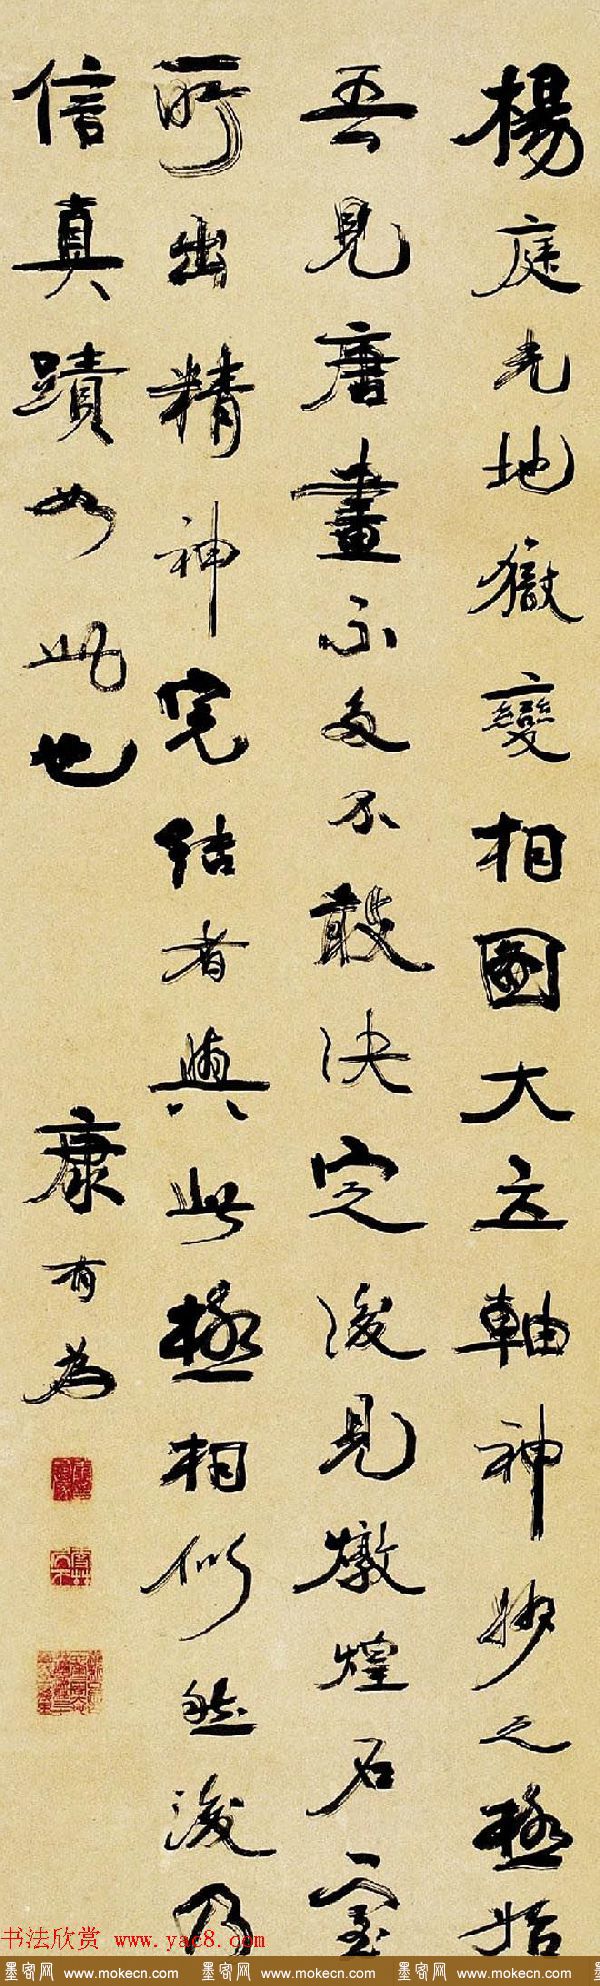 楊庭光地獄變相國大立軸神妙之極始
吾見唐畫不多不敢決定後見燉煌石室
所出精神完結者與此極相似然後乃
信真蹟如此也
康有為
书法欣赏 www.yac8.com
墨密网 www.mokecn.com 墨密网 www.mokecn.com 墨密网 www.mokecn.com